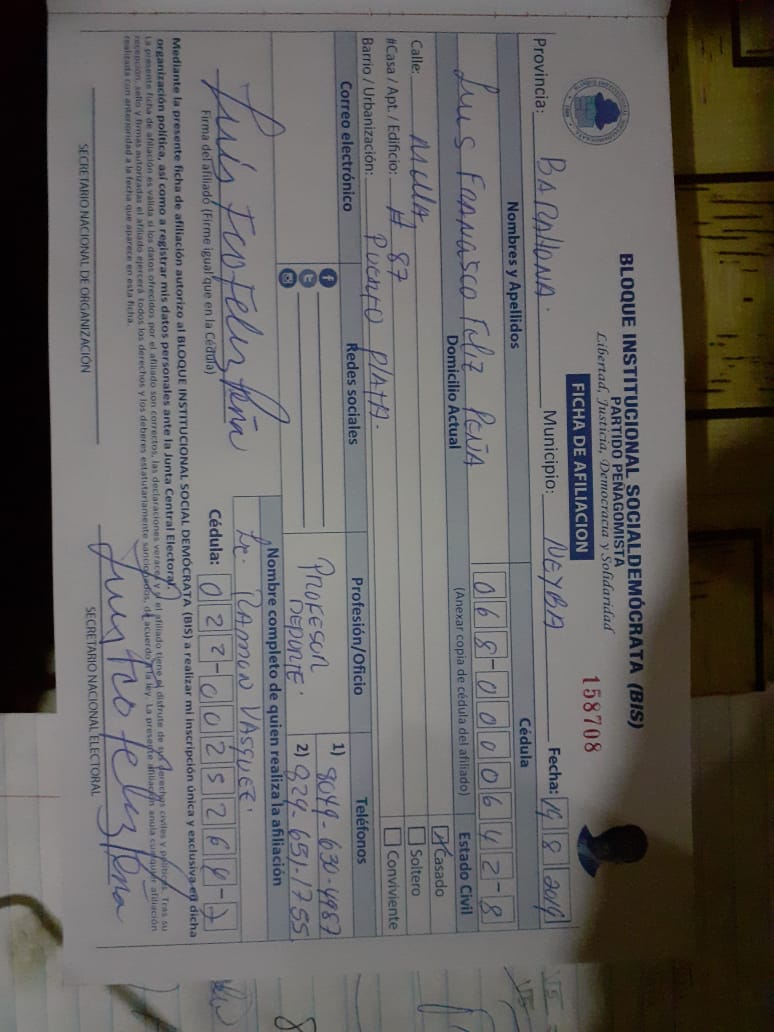 BLOQUE INSTITUCIONAL SOCIALDEMÓCRATA (BIS)
PARTIDO PEÑAGOMISTA
Libertad, Justicia, Democracia y Solidaridad
FICHA DE AFILIACION
158708
Provincia: BARAHONA. Municipio: NEYBA Fecha: 19 8 2019
Nombres y Apellidos Cédula
Luis FRANCISCO Feliz PEÑA 068-0000642-8
Domicilio Actual (Anexar copia de cédula del afiliado) Estado Civil
Calle: MELLA
#Casa / Apt. / Edificio: # 87
Barrio / Urbanización: PUERTO PLATA.
Casado
Soltero
Conviviente
Correo electrónico Redes sociales Profesión/Oficio Teléfonos
PROFESOR DEPORTE. 1) 8049-630-4987
2) 829-651-1755
Nombre completo de quien realiza la afiliación
RAMON VASQUEZ.
Luis Fco Feliz Peña
Firma del afiliado (Firme igual que en la Cédula) Cédula: 022-0025264-7
Mediante la presente ficha de afiliación autorizo al BLOQUE INSTITUCIONAL SOCIAL DEMÓCRATA (BIS) a realizar mi inscripción única y exclusiva en dicha
organización política, así como a registrar mis datos personales ante la Junta Central Electoral.
La presente ficha de afiliación es válida si los datos ofrecidos por el afiliado son correctos, las declaraciones veraces y si el afiliado tiene el disfrute de sus derechos civiles y políticos. Tras su
recepción, sello y firmas autorizadas el afiliado ejercerá todos los derechos y los deberes estatutariamente sancionados, de acuerdo a la ley. La presente afiliación anula cualquier afiliación
realizada con anterioridad a la fecha que aparece en esta ficha.
Luis Fco Feliz Peña
SECRETARIO NACIONAL DE ORGANIZACIÓN SECRETARIO NACIONAL ELECTORAL